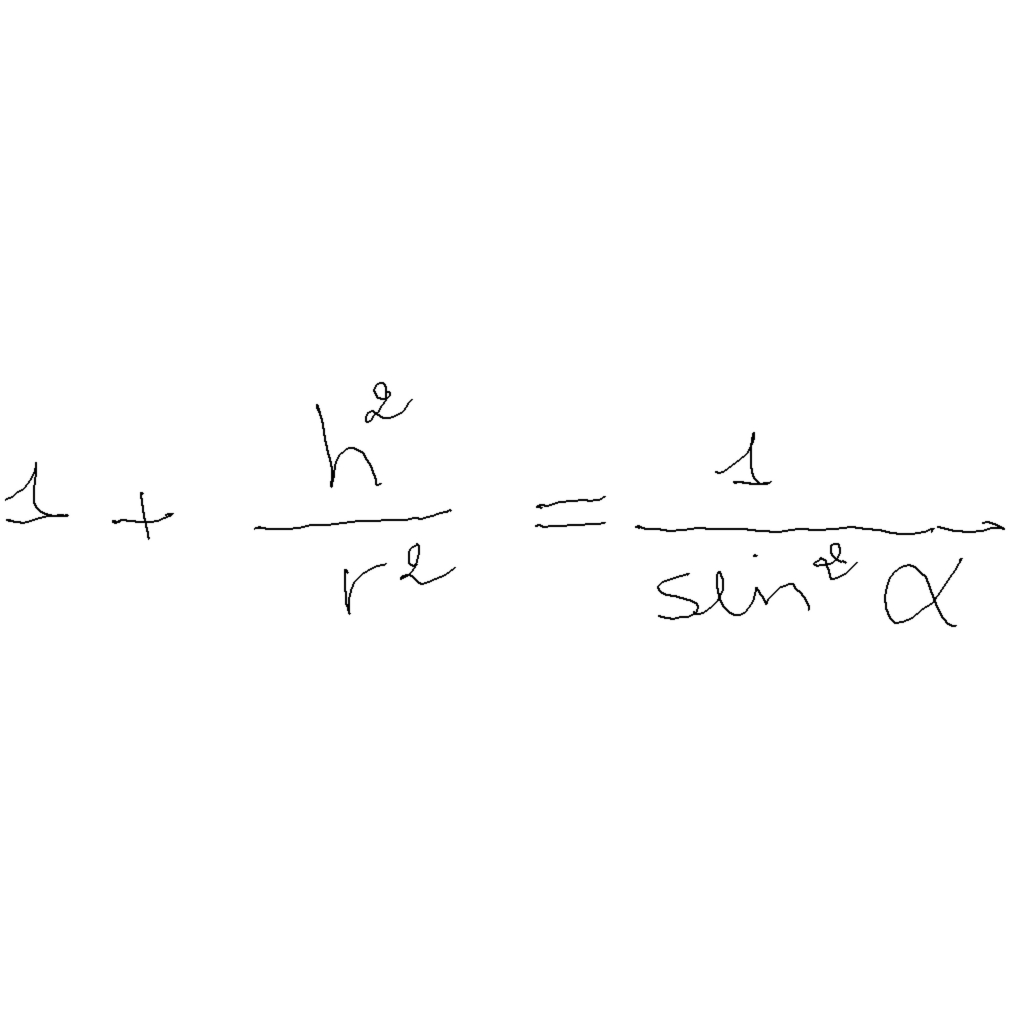 1 + \frac{h^2}{r^2} = \frac{1}{\sin^2 \alpha}